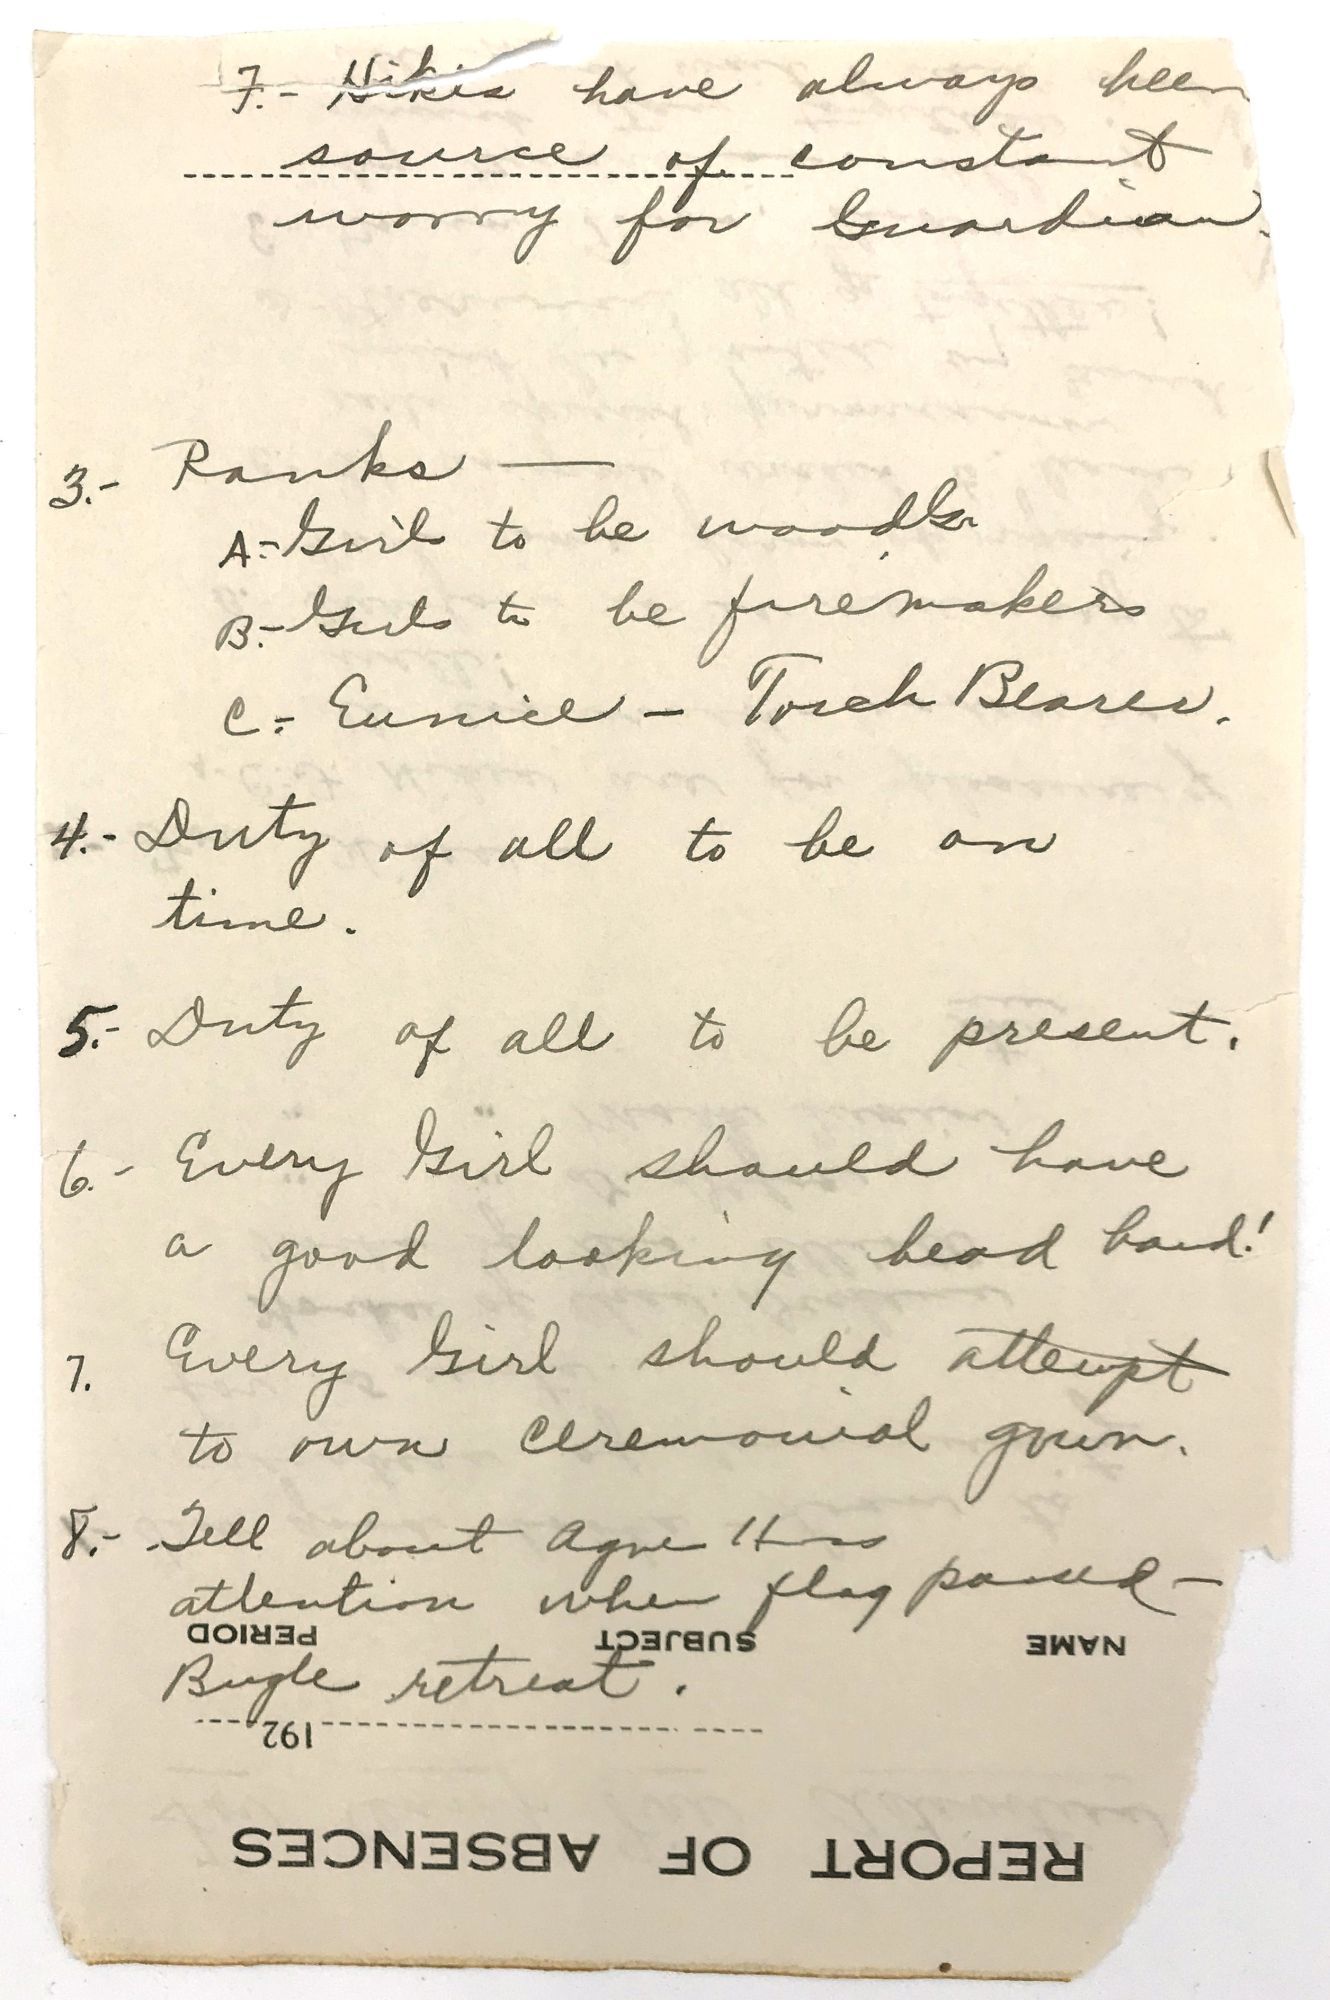 7.- Hikes have always been
source of constant
worry for Guardian.
3.- Ranks —
A.- Girls to be woodg.
B.- Girls to be firemakers
C.- Eunice - Torch Bearer.
4.- Duty of all to be on
time.
5.- Duty of all to be present.
6.- Every Girl should have
a good looking head band!
7. Every Girl should attempt
to own ceremonial gown.
8.- Tell about
attention when flag passed -
NAME SUBJECT PERIOD
Bugle retreat.
192
REPORT OF ABSENCES